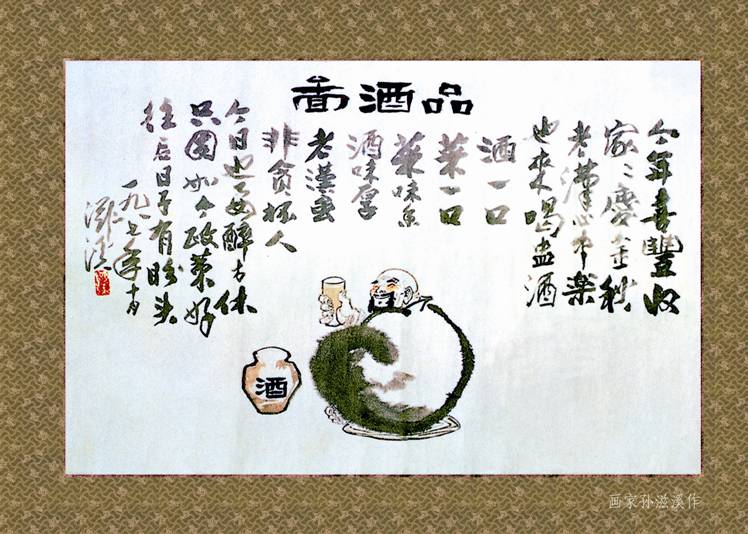 品酒啚
今年喜豐收
家〻慶金秋
老漢心中樂
也來喝盅酒
酒一口
菜一口
菜味
酒味厚
老漢虽
非貪杯人
今日也要醉方休
只因如今政策好
往后日子有盼头
一九八七年十月
滋溪
酒
画家孙滋溪作